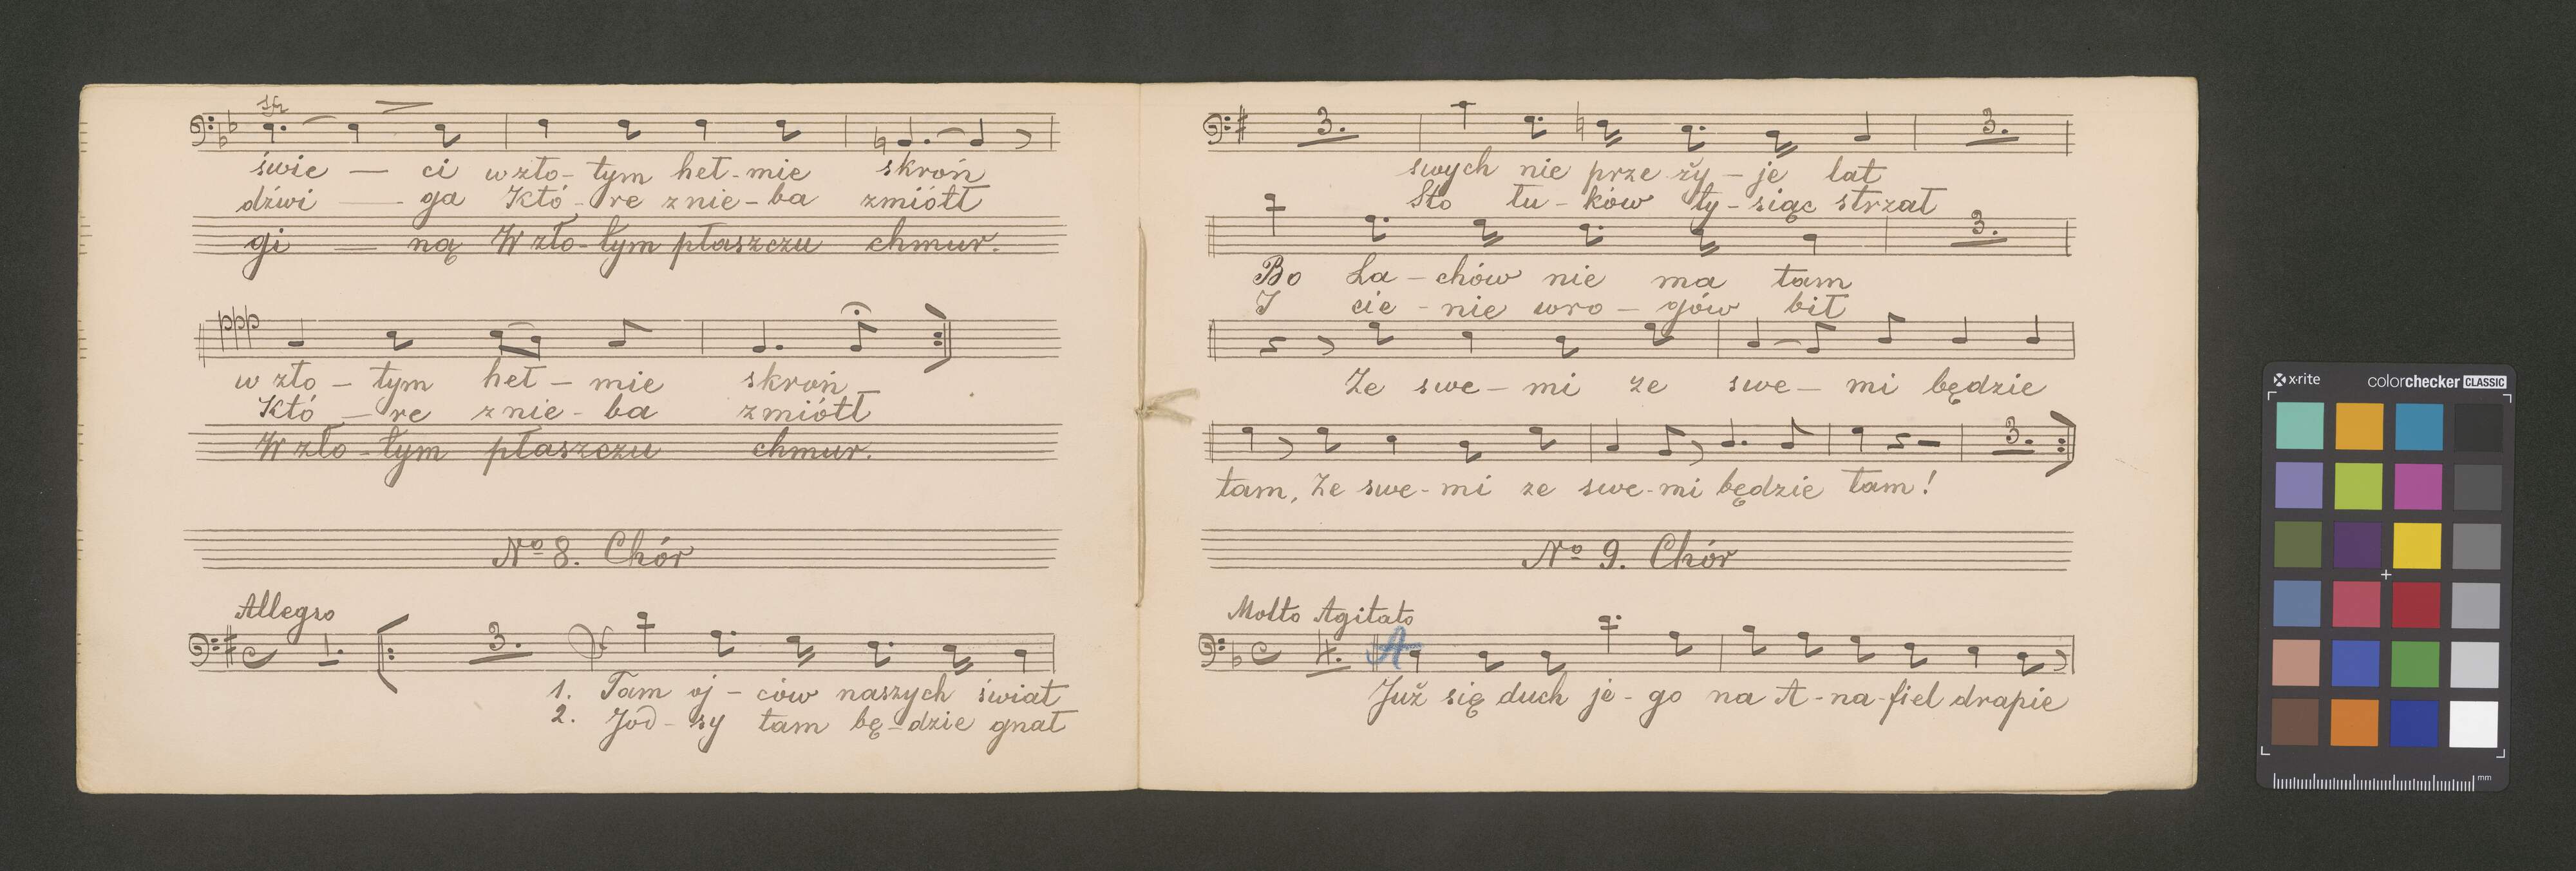 sfz
świe — ci w zło-tym heł-mie skroń
dźwi — ga Któ-re z nie-ba zmiótł
gi — ną W zło-tym płaszczu chmur.
w zło-tym heł-mie skroń
Któ-re z nie-ba zmiótł
W zło-tym płaszczu chmur.
No 8. Chór
Allegro
1.
3.
1. Tam oj-ców naszych świat
2. Jod-sy tam bę-dzie gnał
3.
3.
swych nie prze ży-je lat
Sto łu-ków ty-siąc strzał
3.
Bo La-chów nie ma tam
I cie-nie wro-gów bił
Ze swe-mi ze swe-mi będzie
3.
tam, Ze swe-mi ze swe-mi będzie tam!
No 9. Chór
Molto Agitato
4.
A
Już się duch je-go na A-na-fiel drapie
x-rite colorchecker CLASSIC
mm